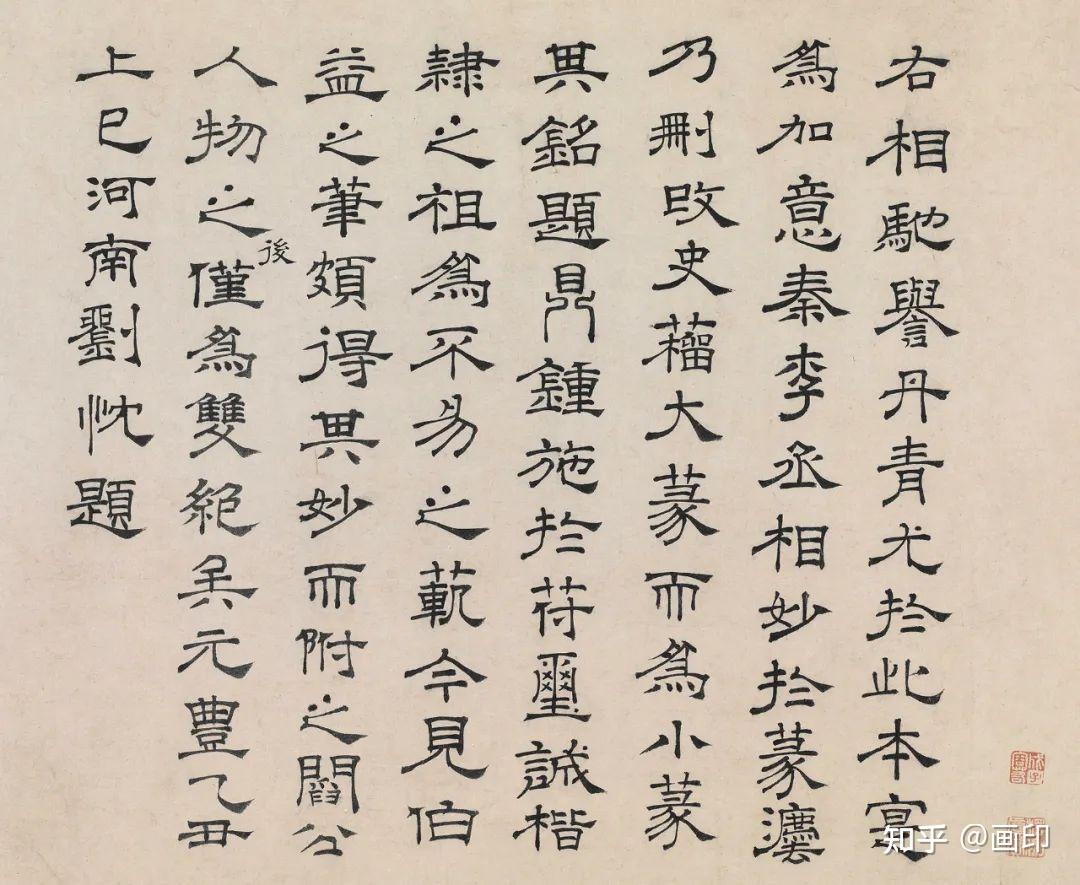 右相馳譽丹青尤於此本寔
爲加意秦李丞相妙於篆灋
乃刪改史籀大篆而爲小篆
其銘題鼎鍾施於符璽誠楷
隸之祖爲不易之範今見伯
益之筆頗得其妙而附之閻公
人物之後僅爲雙絕矣元豐乙丑
上巳河南劉忱題
知乎 @画印